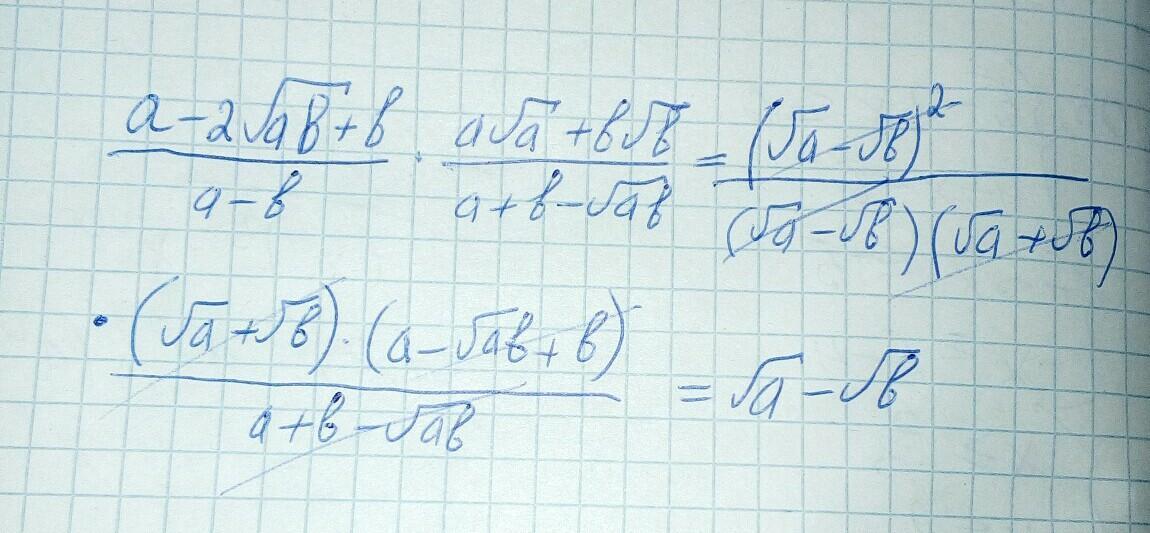 (a-2√ab+b)/(a-b) · (a√a+b√b)/(a+b-√ab) = (√a-√b)²/((√a-√b)(√a+√b))
· ((√a+√b)·(a-√ab+b))/(a+b-√ab) = √a-√b